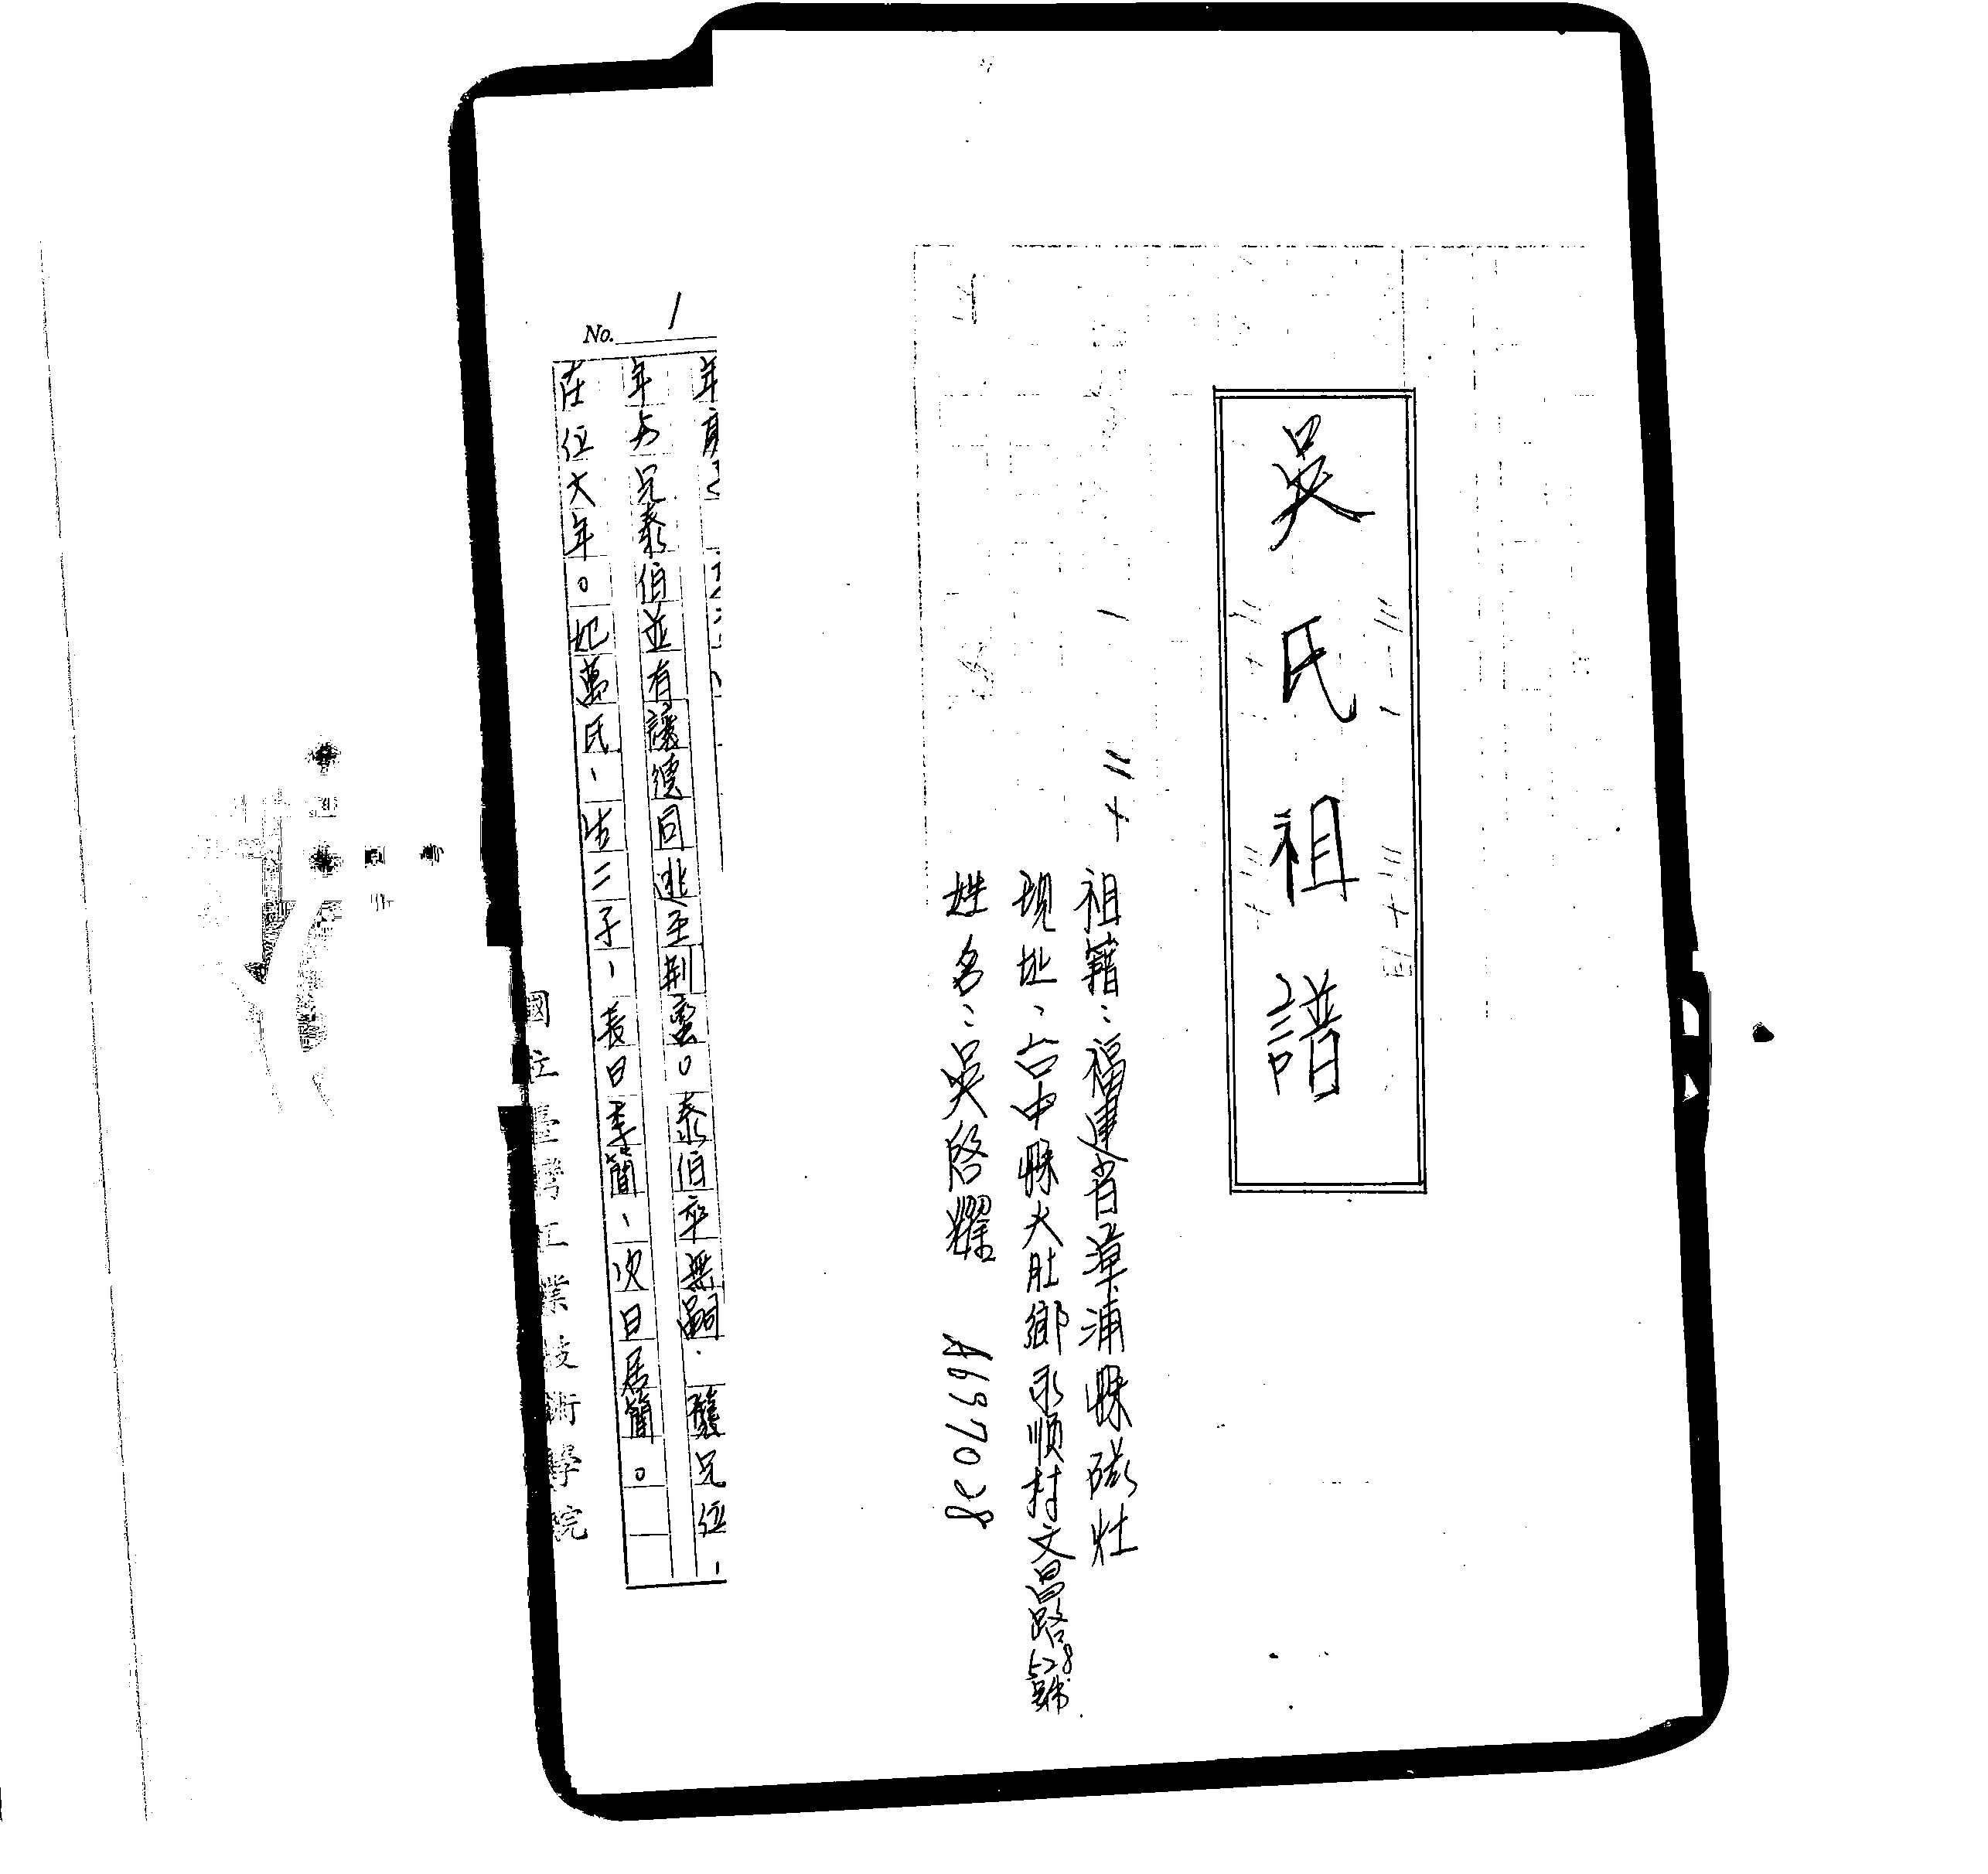 吳氏祖譜
祖籍：福建省漳浦縣磁灶
現址、台中縣大肚鄉永順村文昌路528號
姓名：吳啓耀 A6697028
No. 1
年與兄泰伯並有讓德同逃至荆蠻。泰伯卒無嗣.襲兄位、
在位大年。妃萬氏、生二子、長曰季簡、次曰居簡。
國立臺灣工業技術學院